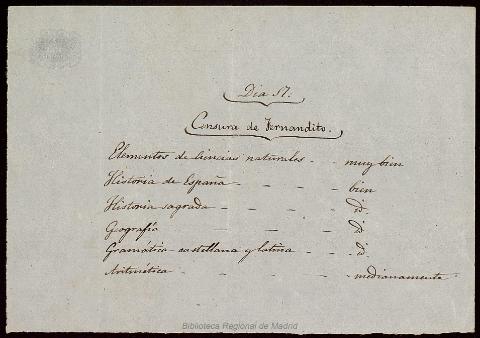 Dia 17.
Censura de Fernandito.
Elementos de ciencias naturales - - muy bien
Historia de España - - - - bien
Historia sagrada - - - - id.
Geografía - - - - id.
Gramática castellana y latina - - id.
Aritmética - - - - - medianamente
Biblioteca Regional de Madrid